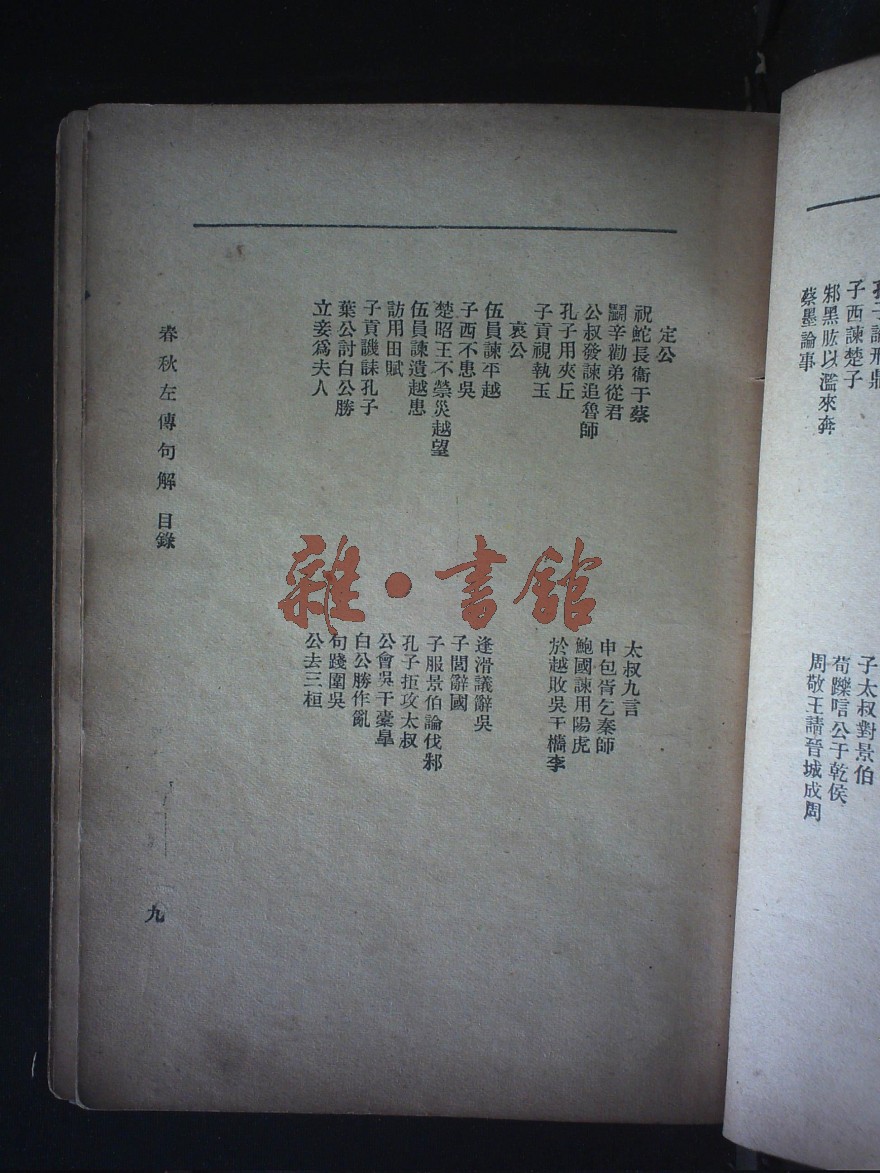 子西諫楚子
邾黑肱以濫來奔
蔡墨論事
子太叔對景伯
荀躒唁公于乾侯
周敬王請晉城成周
定公
祝鮀長衞于蔡
鬬辛勸弟從君
公叔發諫追魯師
孔子用夾丘
子貢視執玉
哀公
伍員諫平越
子西不患吳
楚昭王不禜災越望
伍員諫遺越患
訪用田賦
子貢譏誄孔子
葉公討白公勝
立妾爲夫人
太叔九言
申包胥乞秦師
鮑國諫用陽虎
於越敗吳于檇李
逢滑議辭吳
子閭辭國
子服景伯論伐邾
孔子拒攻太叔
公會吳于橐臯
白公勝作亂
句踐圍吳
公去三桓
春秋左傳句解 目錄
九
雜·書館